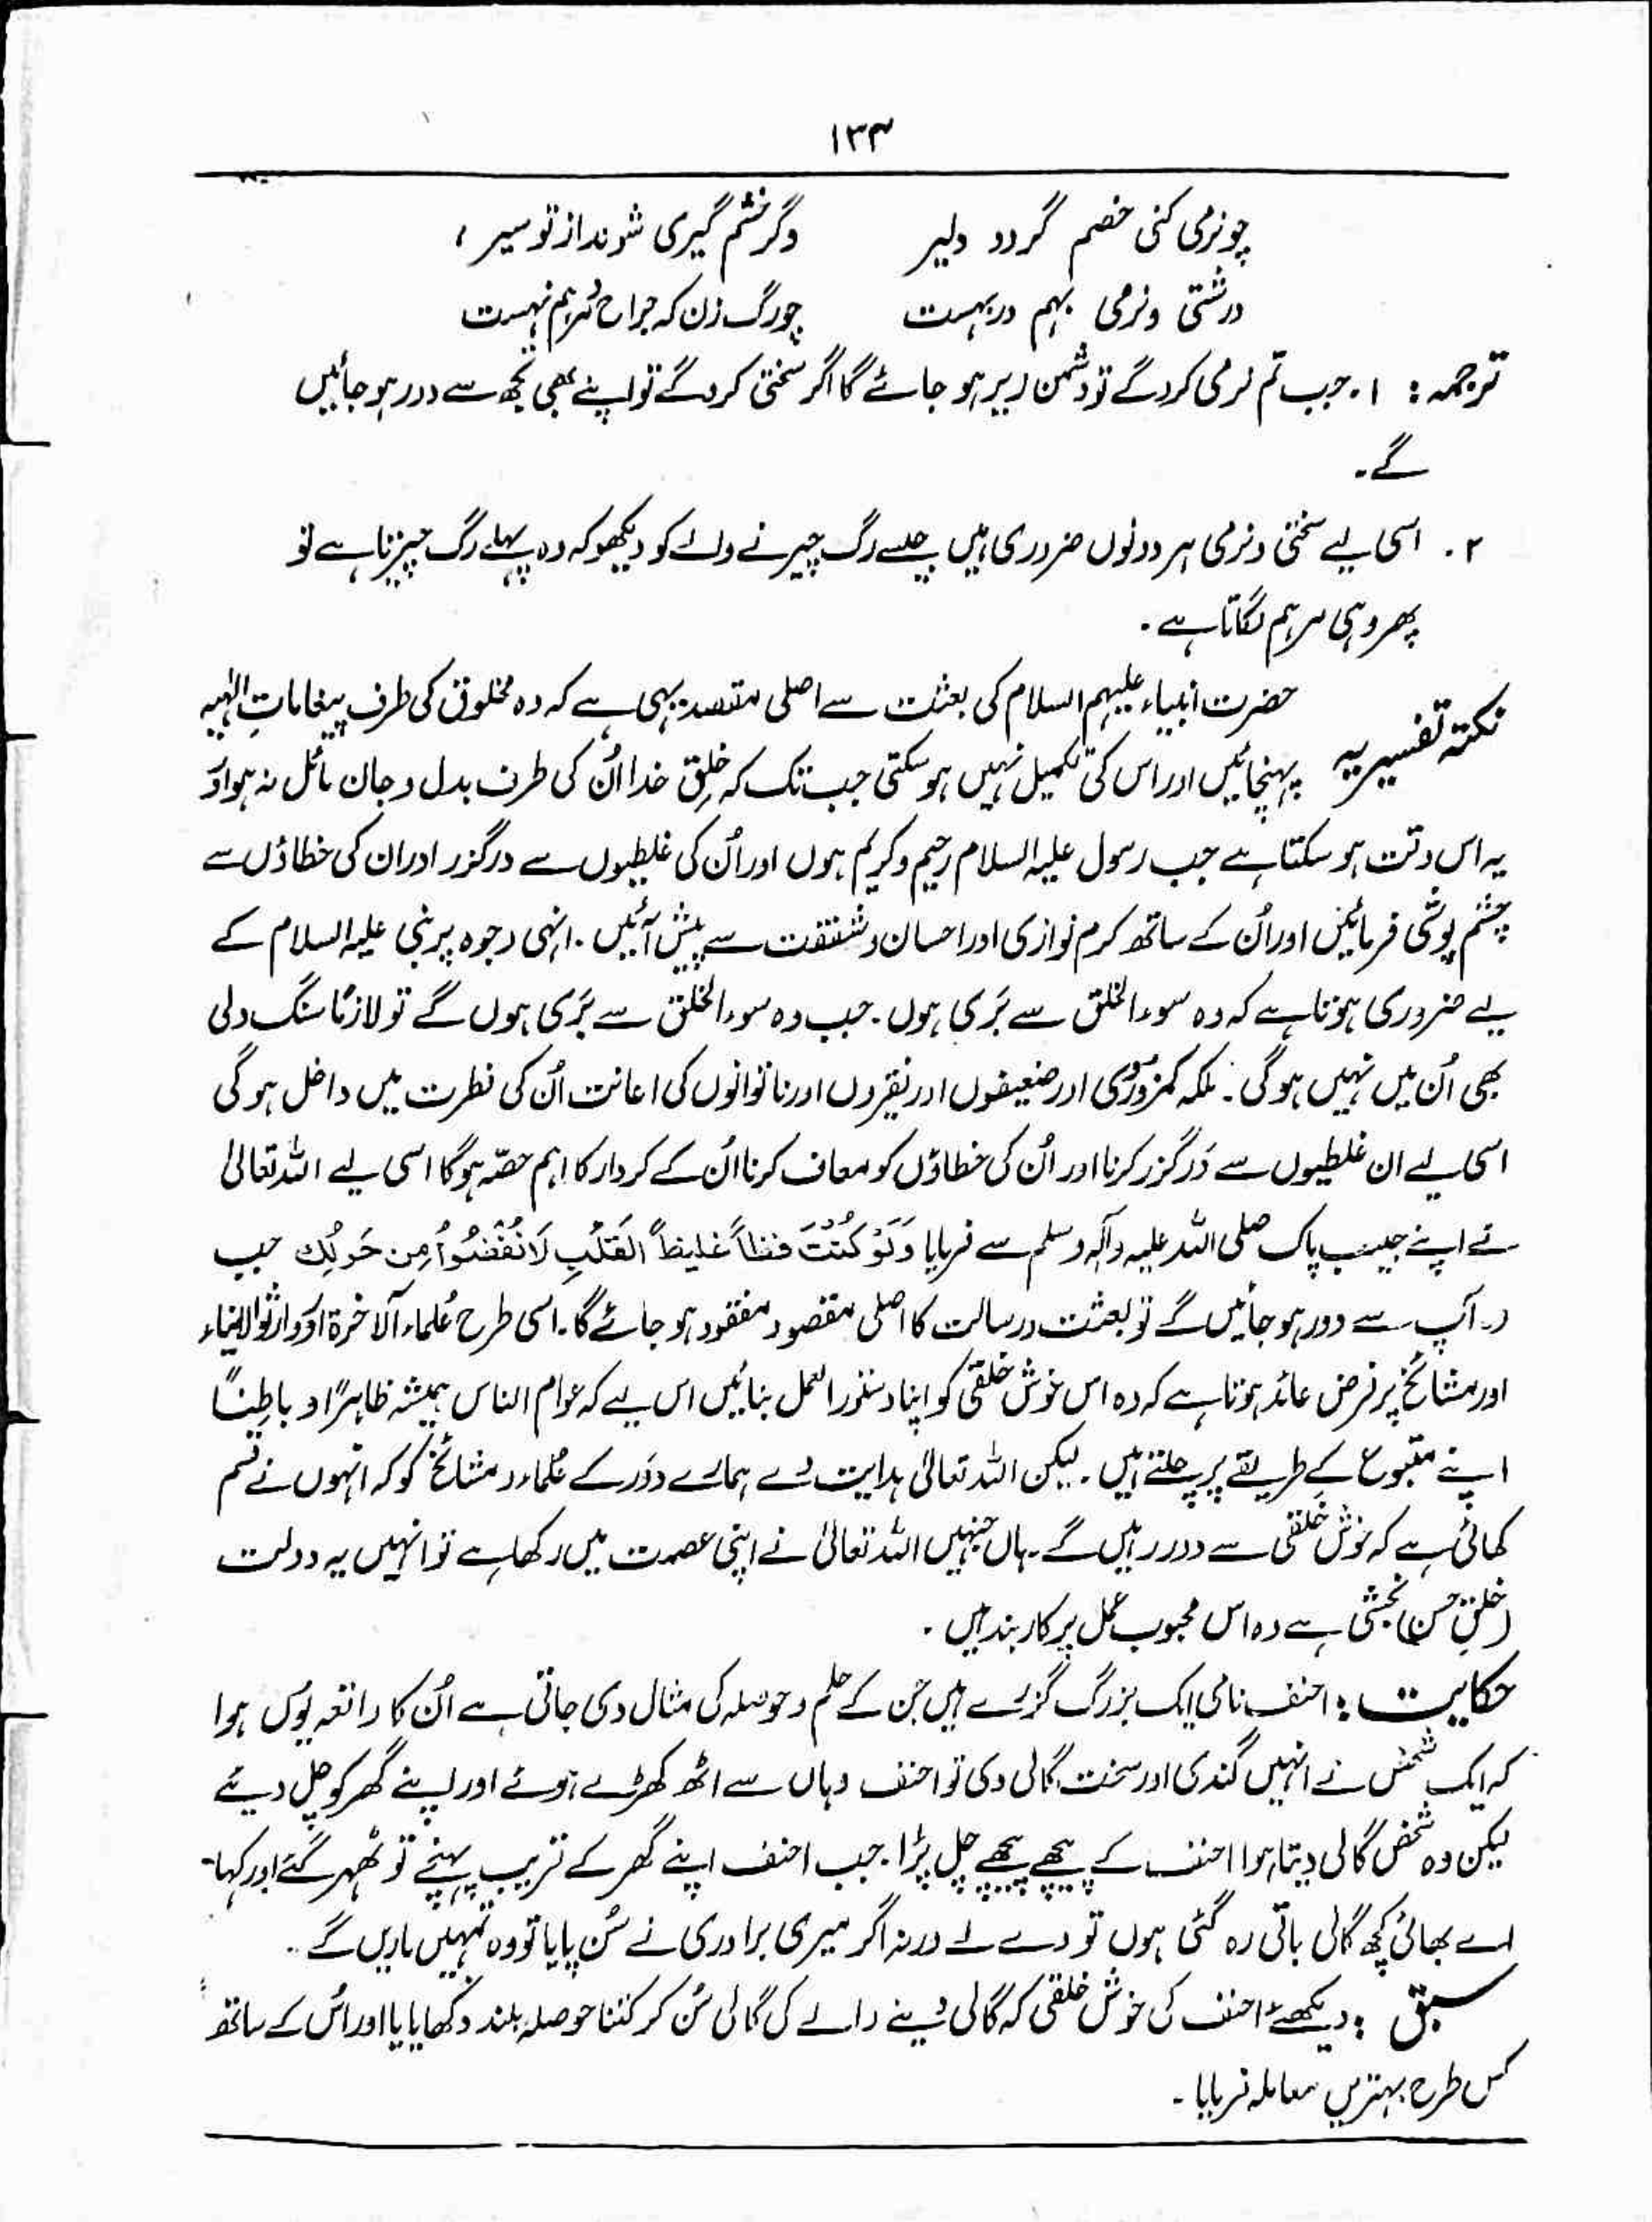 ۱۳۳
چو نرمی کنی خصم گردد دلیر وگر خشم گیری شوند از تو سیر ،
درشتی و نرمی بہم در بہست چو رگ زن کہ جراح و مرہم نہست
ترجمہ : ۱۔ جب تم نرمی کرو گے تو دشمن دلیر ہو جائے گا اگر سختی کرو گے تو اپنے بھی تجھ سے دور ہو جائیں
گے۔
۲ ۔ اسی لیے سختی و نرمی ہر دونوں ضروری ہیں جیسے رگ چیرنے والے کو دیکھو کہ وہ پہلے رگ چیرتا ہے تو
پھر وہی مرہم لگاتا ہے ۔
نکتہ تفسیریہ حضرت انبیاء علیہم السلام کی بعثت سے اصلی مقصد یہی ہے کہ وہ مخلوق کی طرف پیغاماتِ الٰہیہ
پہنچائیں اور اس کی تکمیل نہیں ہو سکتی جب تک کہ خلقِ خدا اُن کی طرف بدل و جان مائل نہ ہو اور
یہ اس وقت ہو سکتا ہے جب رسول علیہ السلام رحیم و کریم ہوں اور اُن کی غلطیوں سے درگزر اور ان کی خطاؤں سے
چشم پوشی فرمائیں اور اُن کے ساتھ کرم نوازی اور احسان و شفقت سے پیش آئیں ۔ انہی وجوہ پر نبی علیہ السلام کے
لیے ضروری ہوتا ہے کہ وہ سوء الخلق سے بَری ہوں ۔ جب وہ سوء الخلق سے بَری ہوں گے تو لازمًا سنگ دلی
بھی اُن میں نہیں ہو گی ۔ بلکہ کمزوروں اور ضعیفوں اور فقیروں اور ناتوانوں کی اعانت اُن کی فطرت میں داخل ہو گی
اسی لیے ان غلطیوں سے دَرگزر کرنا اور اُن کی خطاؤں کو معاف کرنا اُن کے کردار کا اہم حصّہ ہو گا اسی لیے اللہ تعالیٰ
نے اپنے حبیب پاک صلی اللہ علیہ وآلہ وسلم سے فرمایا وَلَوْ كُنْتَ فَظًّا غَلِيظَ الْقَلْبِ لَانْفَضُّوْا مِن حَوْلِك جب
وہ آپ سے دور ہو جائیں گے تو بعثت و رسالت کا اصلی مقصود مفقود ہو جائے گا ۔ اسی طرح عُلماء آلاخرۃ اور وارثو الانبیاء
اور مشائخ پر فرض عائد ہوتا ہے کہ وہ اس خوش خلقی کو اپنا دستور العمل بنائیں اس لیے کہ عوام الناس ہمیشہ ظاہرًا و باطنًا
اپنے متبوع کے طریقے پر چلتے ہیں ۔ لیکن اللہ تعالیٰ ہدایت دے ہمارے دَور کے عُلماء و مشائخ کو کہ انہوں نے قسم
کھائی ہے کہ خوش خُلقی سے دور رہیں گے ۔ ہاں جنہیں اللہ تعالیٰ نے اپنی عصمت میں رکھا ہے تو انہیں یہ دولت
(خلقِ حسن) بخشی ہے وہ اس محبوب عمل پر کاربند ہیں ۔
حکایت : احنف نامی ایک بزرگ گزرے ہیں جن کے حلم و حوصلہ کی مثال دی جاتی ہے اُن کا واقعہ یوں ہوا
کہ ایک شخص نے انہیں گندی اور سخت گالی دی تو احنف وہاں سے اٹھ کھڑے ہوئے اور اپنے گھر کو چل دیئے
لیکن وہ شخص گالی دیتا ہوا احنف کے پیچھے پیچھے چل پڑا ۔ جب احنف اپنے گھر کے قریب پہنچے تو ٹھہر گئے اور کہا۔
اے بھائی کچھ گالی باقی رہ گئی ہوں تو دے لے ورنہ اگر میری برادری نے سُن پایا تو وہ تمہیں ماریں گے ۔
سبق : دیکھئے احنف کی خوش خلقی کہ گالی دینے والے کی گالی سُن کر کتنا حوصلہ بلند دکھایا یا اور اُس کے ساتھ
کس طرح بہترین معاملہ فرمایا ۔